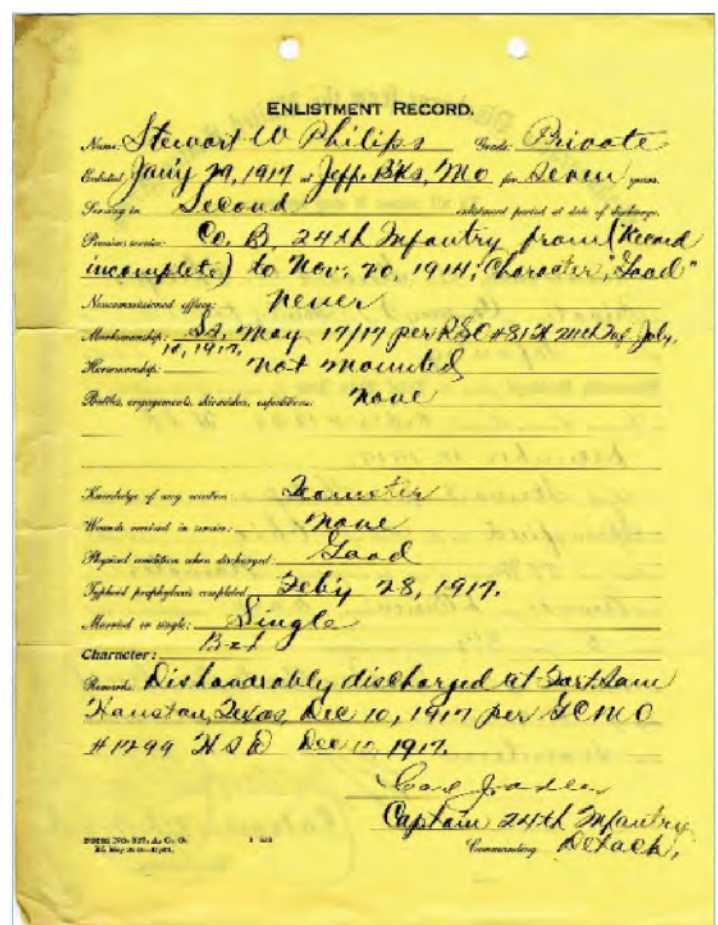 ENLISTMENT RECORD.
Name: Stewart W Philips Grade: Private
Enlisted Jan'y 29, 1917 at Jeff. B'ks, Mo for Seven years.
Serving in Second enlistment period at date of discharge.
Previous service: Co. B, 24th Infantry from (Record
incomplete) to Nov. 20, 1914; Character, "Good"
Noncommissioned officer: never
Marksmanship: May 17/17 per 24th Inf July
10, 1917.
Horsemanship: not mounted
Battles, engagements, skirmishes, expeditions: none
Knowledge of any vocation: Teamster
Wounds received in service: none
Physical condition when discharged: Good
Typhoid prophylaxis completed Feb'y 28, 1917.
Married or single: Single
Character: Bad
Remarks: Dishonorably discharged at Fort Sam
Houston, Texas, Dec 10, 1917 per GCMO
#1299 HSD Dec 10 1917.
Captain 24th Infantry
FORM NO. 525, A. G. O.
Commanding Detach,